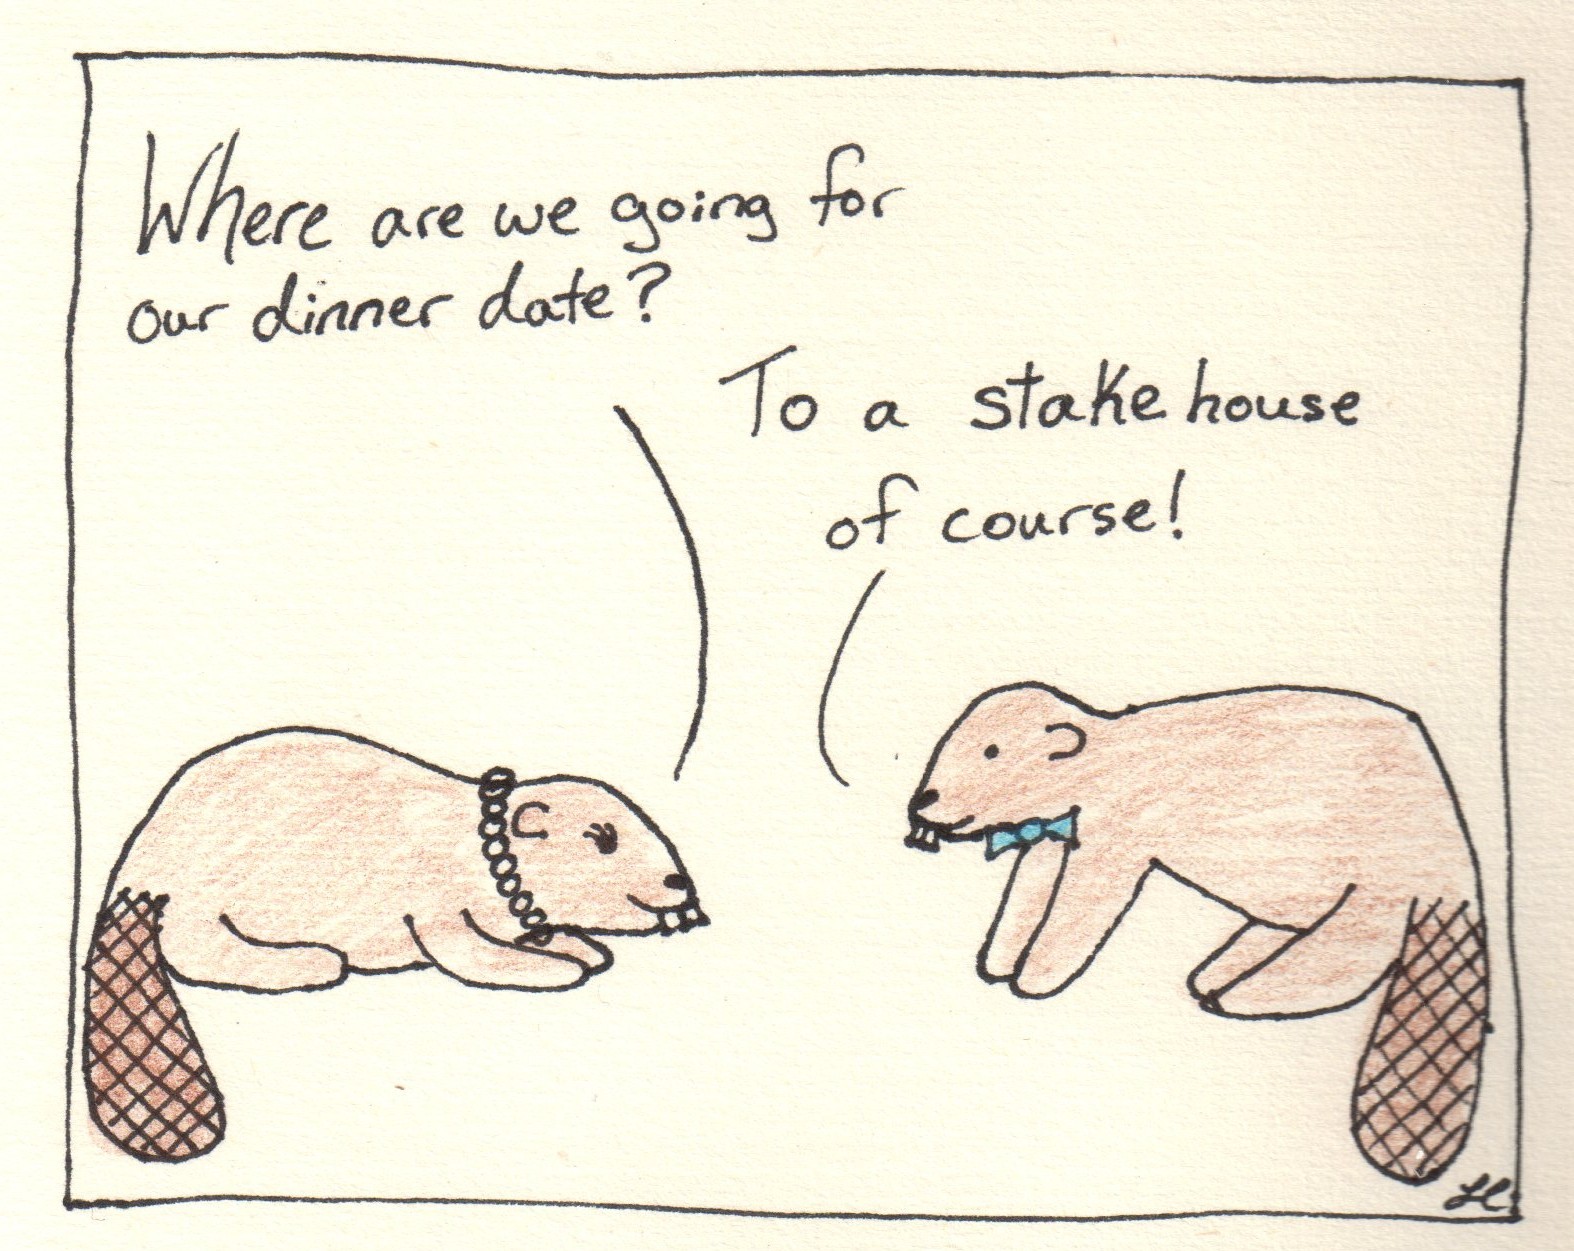 Where are we going for
our dinner date?
To a stake house
of course!